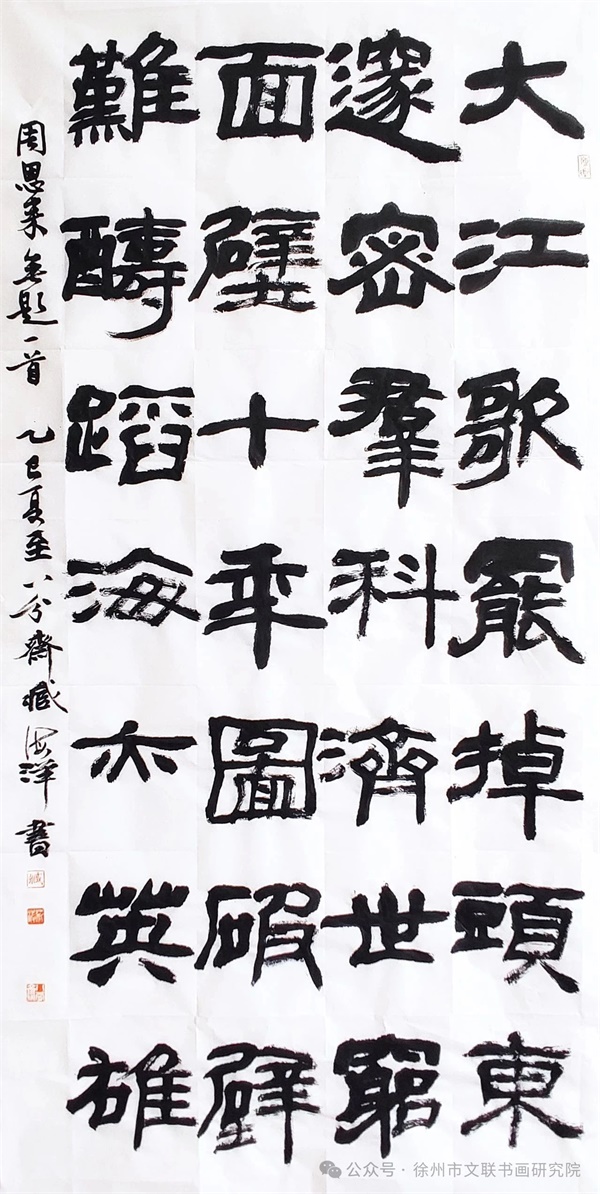 大江歌罷掉頭東
邃密羣科濟世窮
面壁十年圖破壁
難酬蹈海亦英雄
周恩来無題一首 乙巳夏至八分齋臧海洋書
公众号·徐州市文联书画研究院